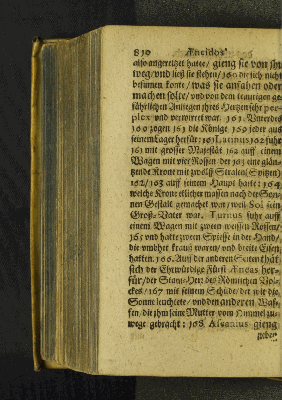 830 Æneidos
also angereitzet hatte/ gieng sie von ihm
weg/ und ließ sie stehen/ 160 die sich nicht
besinnen konte/ was sie anfahen oder
machen solte/ und von dem traurigen ge-
fährlichen Anliegen ihres Hertzens sehr per-
plex und verwirret war. 161 Unterdes
zogen 161 die Könige 169 jeder aus
seinem Lager herfür: Latinus 162 fuhr
mit grosser Majestät auff einem
Wagen mit vier Rossen/ der eine glän-
tzende Krone mit zwölff Stralen (Spitzen)
162/163 auff seinem Haupt hatte 164
welche Krone etlicher massen nach der Son-
nen Gestalt gemachet war/ weil Sol sein
Groß-Vater war. Turnus fuhr auff
einem Wagen mit zween weissen Rossen/
165 und hatte zween Spiesse in der Hand/
die umbher krauß waren/ und breite Eisen
hatten. 166 Auff der anderen Seiten that
sich der Ehrwürdige Fürst Æneas her-
für/ der Stam-Herr des Römischen Vol-
ckes/ 167 mit seinem Schilde/ der wie die
Sonne leuchtete/ und den anderen Waf-
fen/ die ihm seine Mutter vom Himmel zu-
wege gebracht: 168 Ascanius gieng